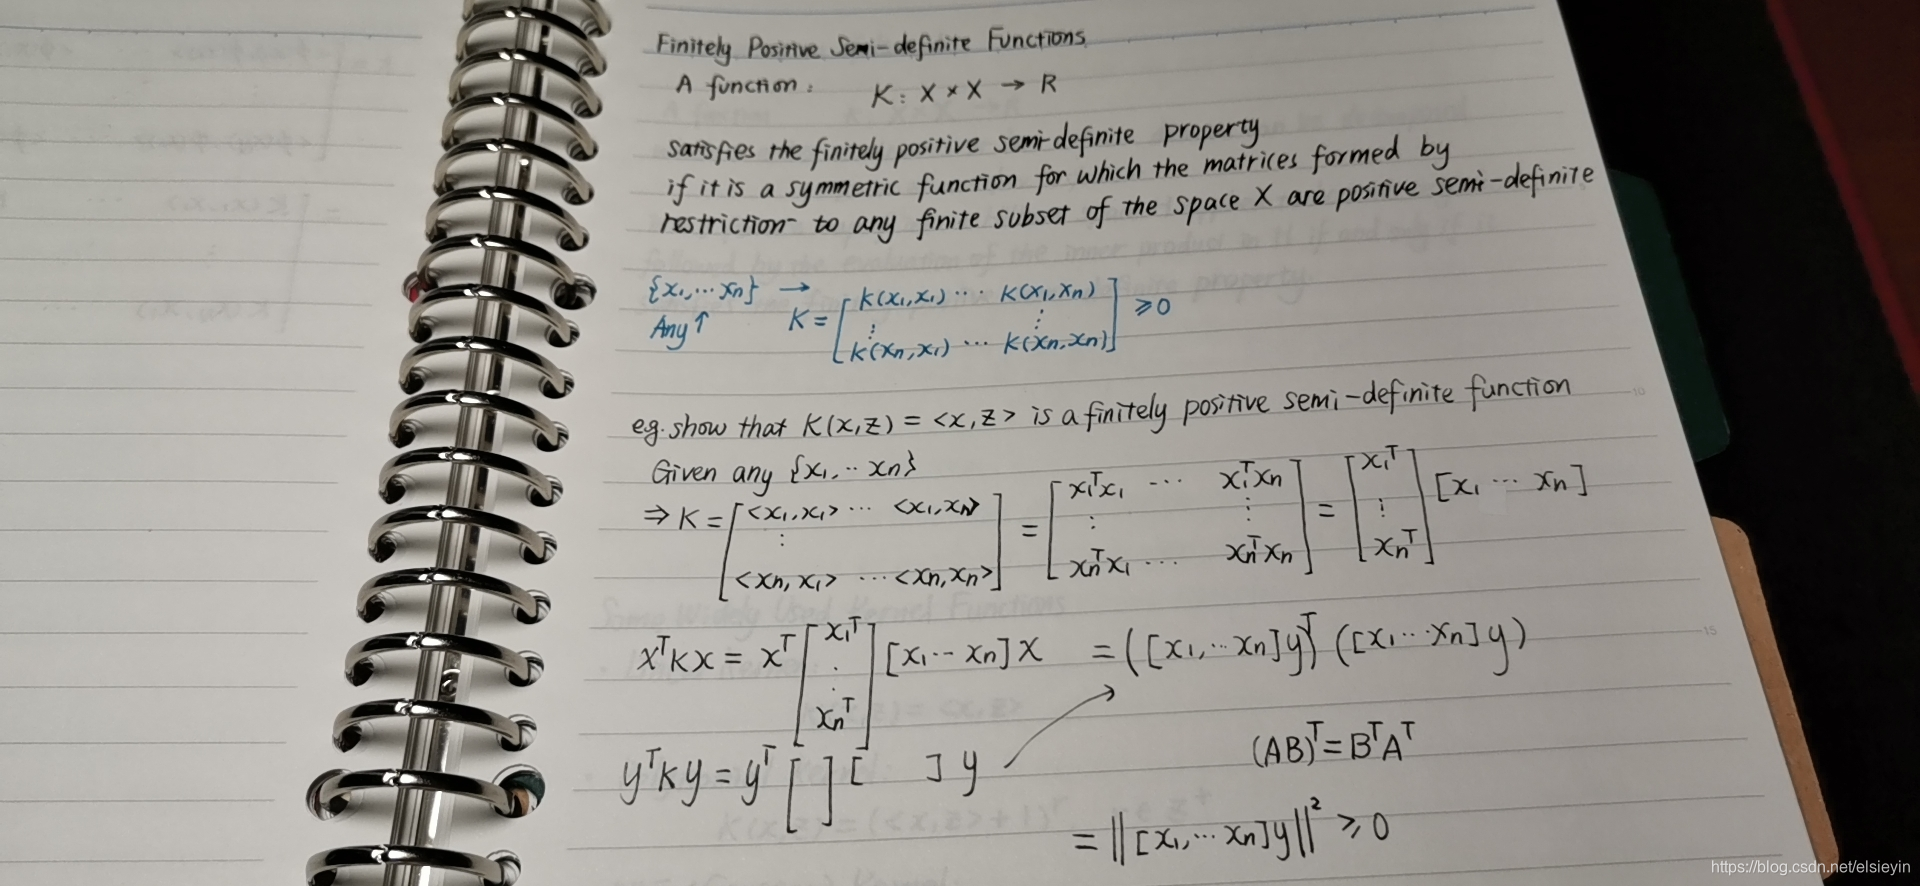 Finitely Positive Semi-definite Functions
A function: K: X × X → R
satisfies the finitely positive semi-definite property
if it is a symmetric function for which the matrices formed by
restriction to any finite subset of the space X are positive semi-definite
{x₁,⋯ xₙ} → K = [ K(x₁,x₁) ⋯ K(x₁,xₙ)
Any ↑ ⋮ ⋮ ≥0
K(xₙ,x₁) ⋯ K(xₙ,xₙ) ]
eg. show that K(x,z) = <x,z> is a finitely positive semi-definite function
Given any {x₁,·· xₙ}
⇒ K = [ <x₁,x₁> ⋯ <x₁,xₙ> = [ x₁ᵀx₁ ⋯ x₁ᵀxₙ = [ x₁ᵀ [x₁ ⋯ xₙ]
⋮ ⋮ ⋮ ⋮
<xₙ,x₁> ⋯ <xₙ,xₙ> ] xₙᵀx₁ ⋯ xₙᵀxₙ ] xₙᵀ ]
xᵀKx = xᵀ [ x₁ᵀ ⋮ xₙᵀ ] [x₁ ·· xₙ] x = ([x₁,⋯ xₙ]y)ᵀ ([x₁ ⋯ xₙ]y)
yᵀKy = yᵀ [ ] [ ] y
(AB)ᵀ = BᵀAᵀ
= ||[x₁,⋯ xₙ]y||² ≥ 0
https://blog.csdn.net/elsieyin